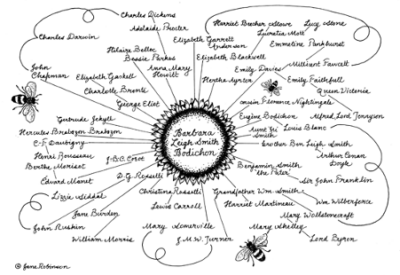 Charles Dickens
Adelaide Procter
Harriet Beecher Stowe
Lucy Stone
Charles Darwin
Elizabeth Garrett
Anderson
Lucretia Mott
Emmeline Pankhurst
Hilaire Belloc
Bessie Parkes
Elizabeth Blackwell
Millicent Fawcett
John
Chapman
Elizabeth Gaskell
Anna Mary
Howitt
Emily Davies
Hertha Ayrton
Emily Faithfull
Charlotte Brontë
Queen Victoria
George Eliot
cousin Florence Nightingale
Gertrude Jekyll
Eugène Bodichon
Alfred Lord Tennyson
Hercules Brabazon Brabazon
Barbara
Leigh Smith
Bodichon
Smith
Louis Blanc
C-F. Daubigny
brother Ben Leigh Smith
Henri Rousseau
J-B-C. Corot
Arthur Conan
Doyle
Berthe Morisot
Benjamin Smith
'the Pater'
Edouard Manet
D.G. Rossetti
Sir John Franklin
Lizzie Siddal
Christina Rossetti
Grandfather Wm. Smith
Wm Wilberforce
Jane Burden
Lewis Carroll
Harriet Martineau
Mary Wollstonecraft
John Ruskin
Mary Somerville
Mary Shelley
William Morris
J.M.W. Turner
Lord Byron
© Jane Robinson